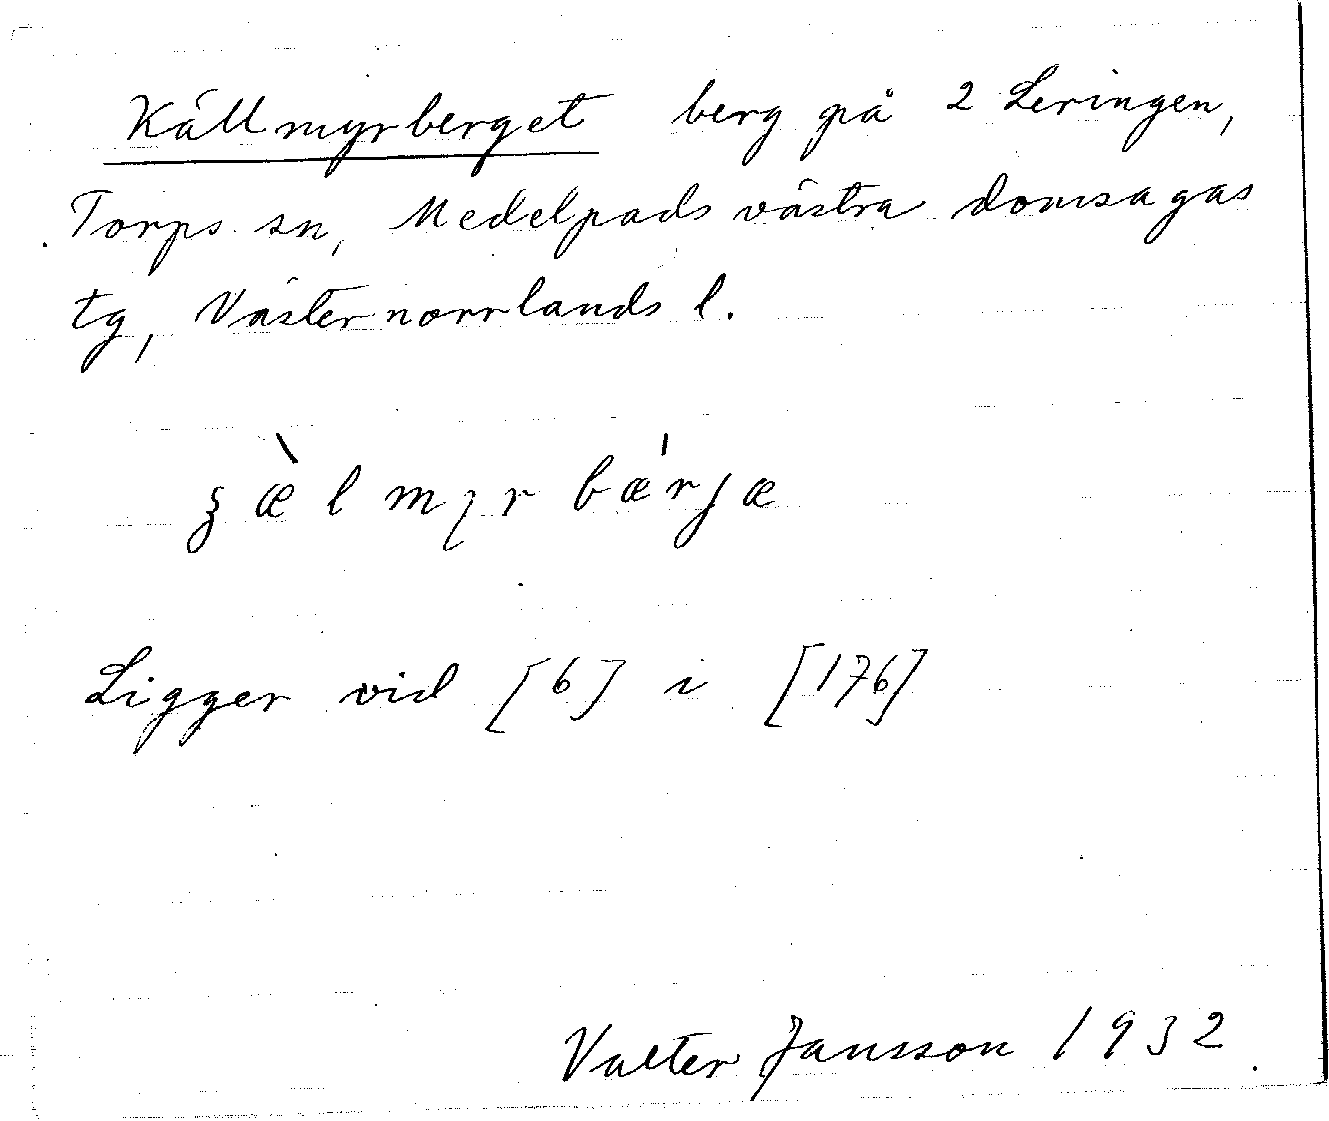 Källmyrberget berg på 2 Leringen,
Torps sn, Medelpads västra domsagas
tg, Västernorrlands l.
Ligger vid [6] i [176]
Valter Jansson 1932